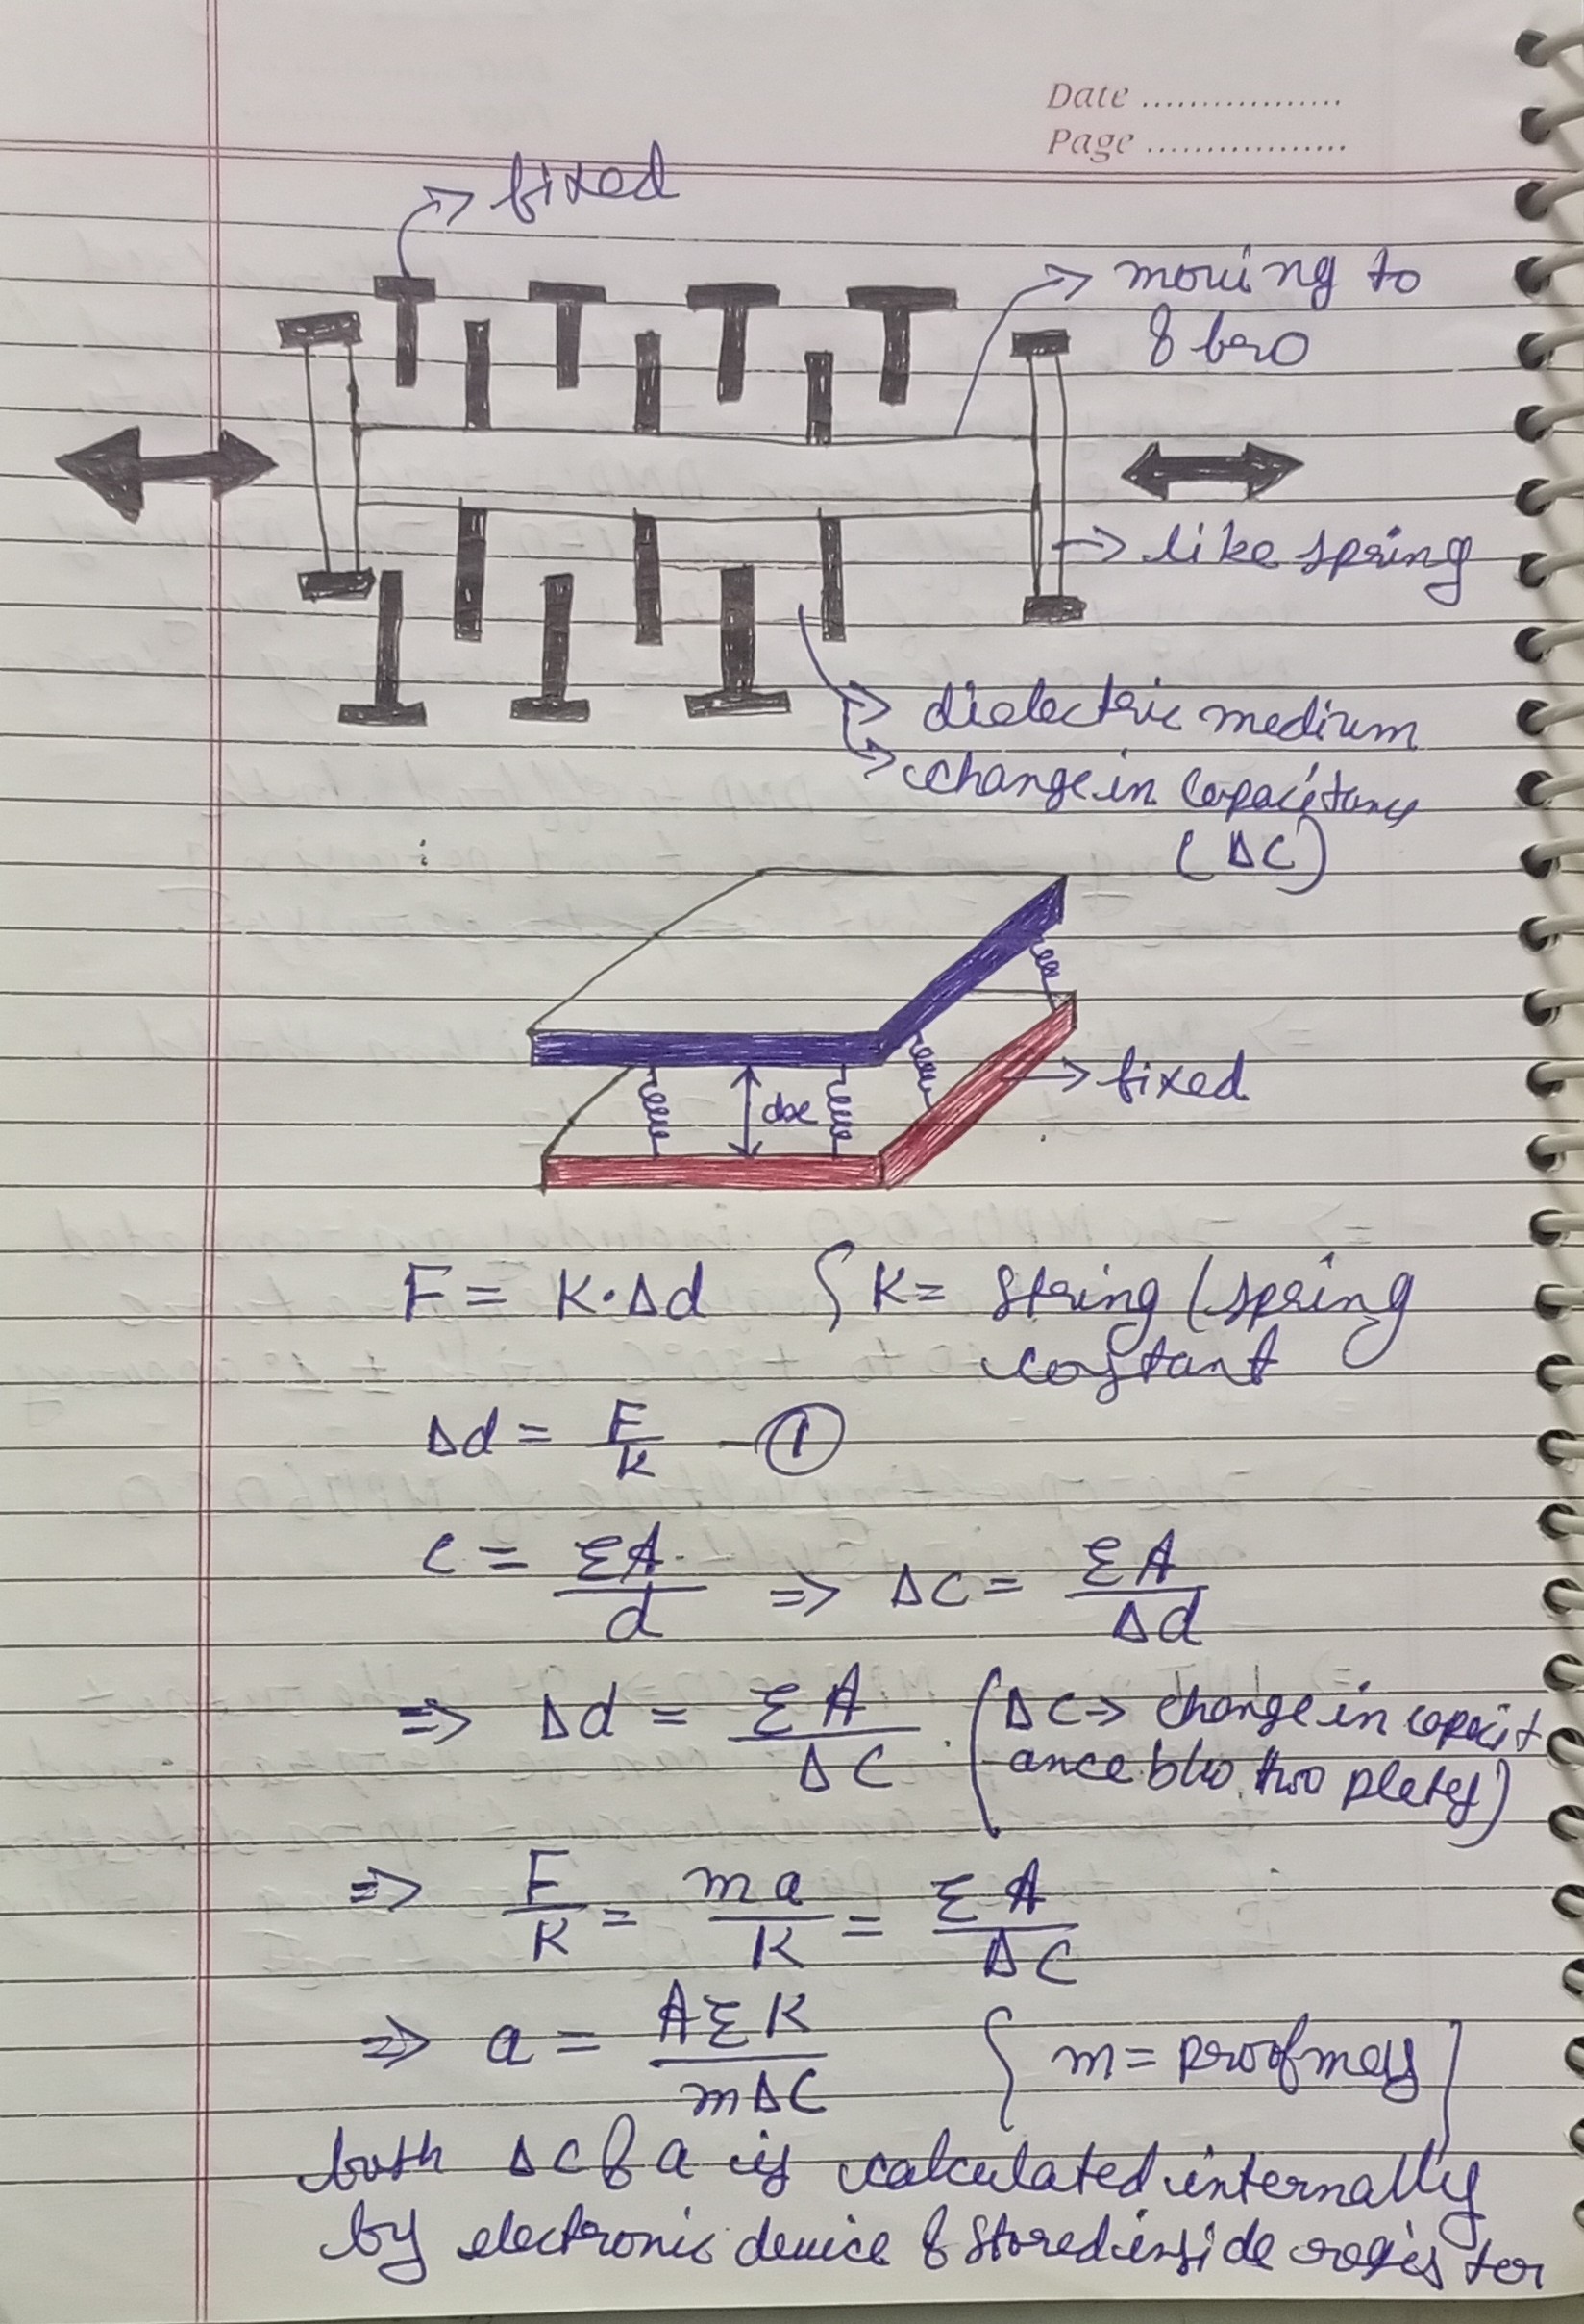 Date ..................
Page ..................
fixed
moving to
& fro
like spring
dielectric medium
change in capacitance
(ΔC)
dx
fixed
F = K·Δd { K = string (spring
constant
Δd = F/K — ①
C = ΣA/d => ΔC = ΣA/Δd
=> Δd = ΣA/ΔC (ΔC → change in capacit
ance b/w two plates)
=> F/K = ma/K = ΣA/ΔC
=> a = AΣK/mΔC { m = proof mass }
both ΔC & a is calculated internally
by electronic device & stored inside register